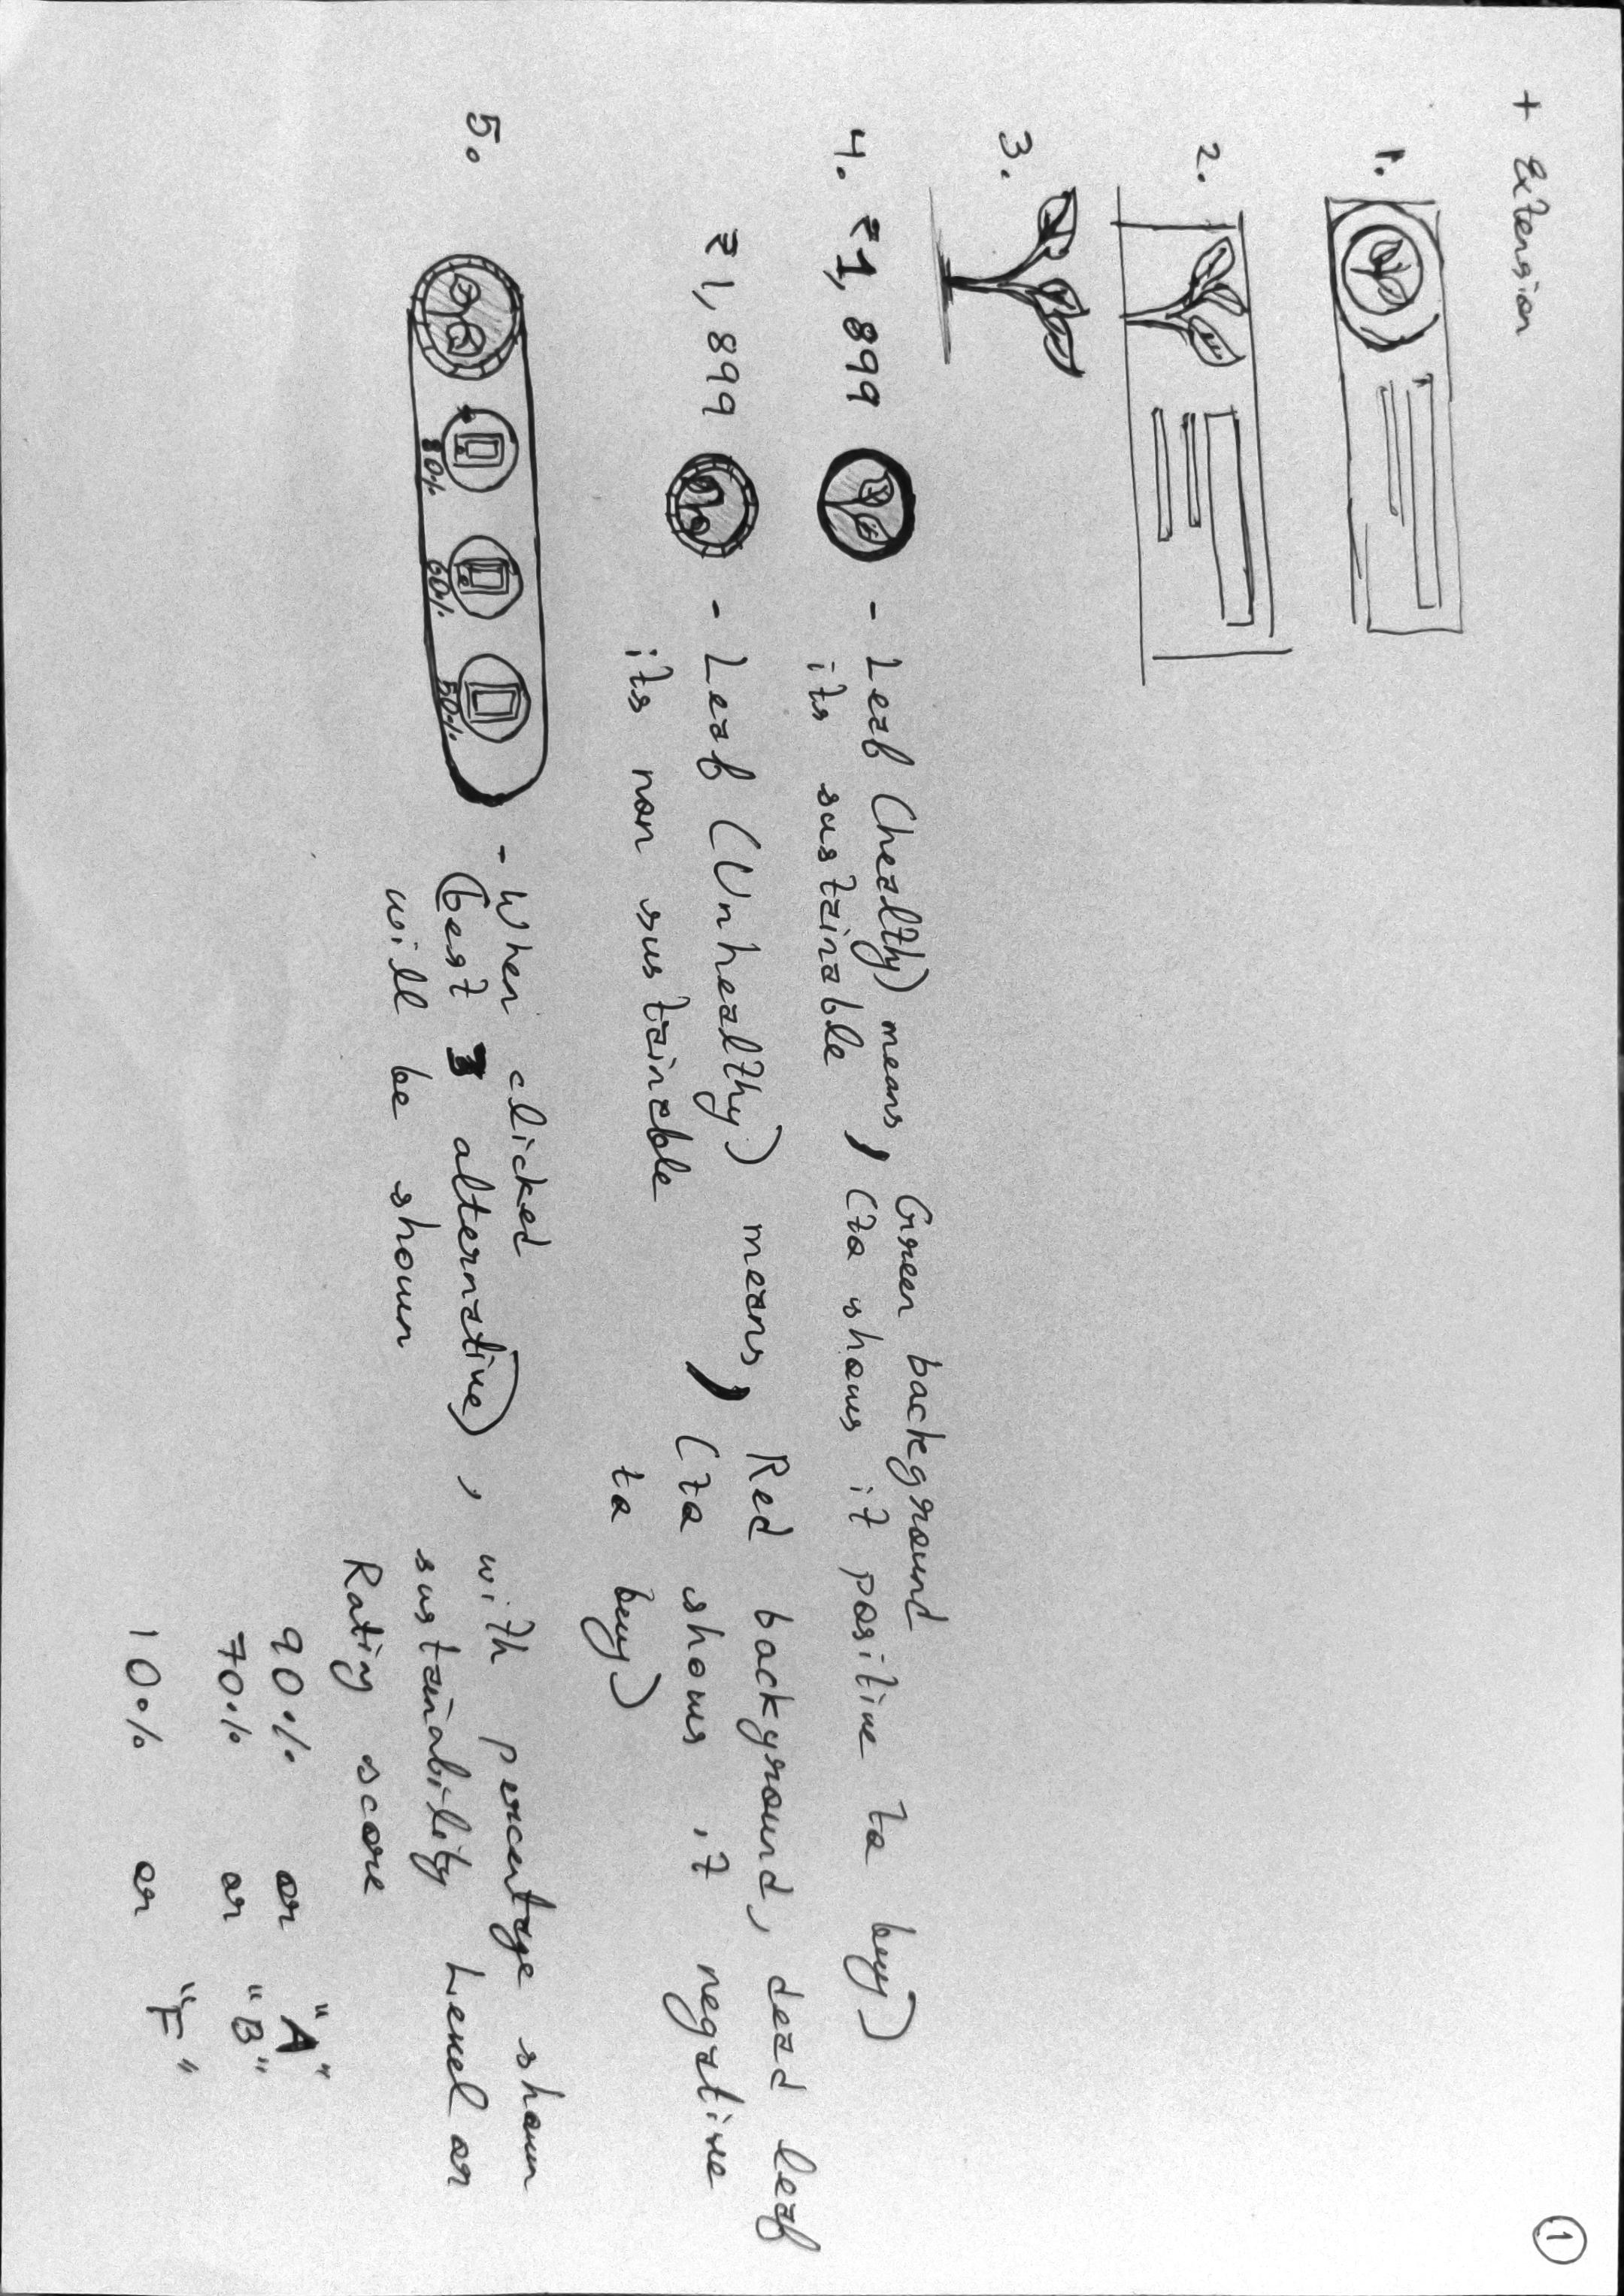 ①
+ Extension
1.
2.
3.
4. ₹1,899 - Leaf (healthy) means, Green background
its sustainable (to shows it positive to buy)
₹1,899 - Leaf (Unhealthy) means, Red background, dead leaf
its non sustainable (to shows it negative
to buy)
5. 80% 60% 50% - When clicked with percentage shown
(best 3 alternative), sustainability Level or
will be shown Rating score
90% or "A"
70% or "B"
10% or "F"